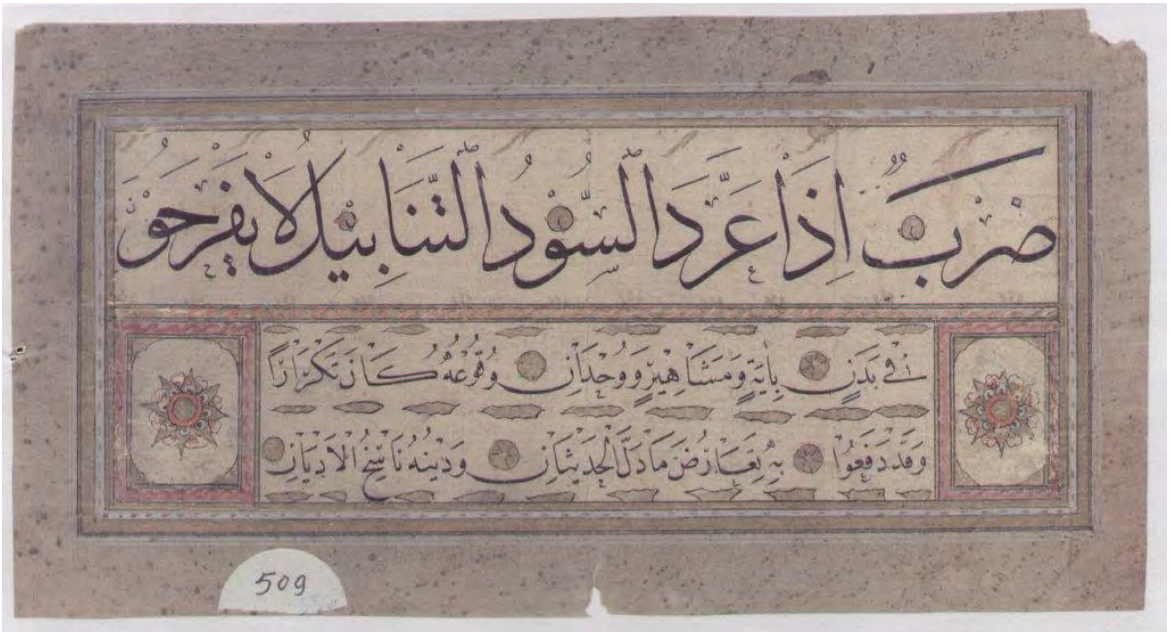 ضَرْبٌ اِذَا عَرَّدَ السُّودُ التَّنَابِيلُ لَا يَفْرَحُو
فِي بَدَنٍ بِاٰيَةٍ وَمَشَاهِيرٍ وَوُحْدَانِ وُقُوعُهُ كَانَ تَكْرَارًا
وَقَدْ دَفَعُوا بِهِ تَعَارُضَ مَا دَلَّ الْحَدِيثَانِ وَدِينُهُ نَاسِخُ الْاَدْيَانِ
509